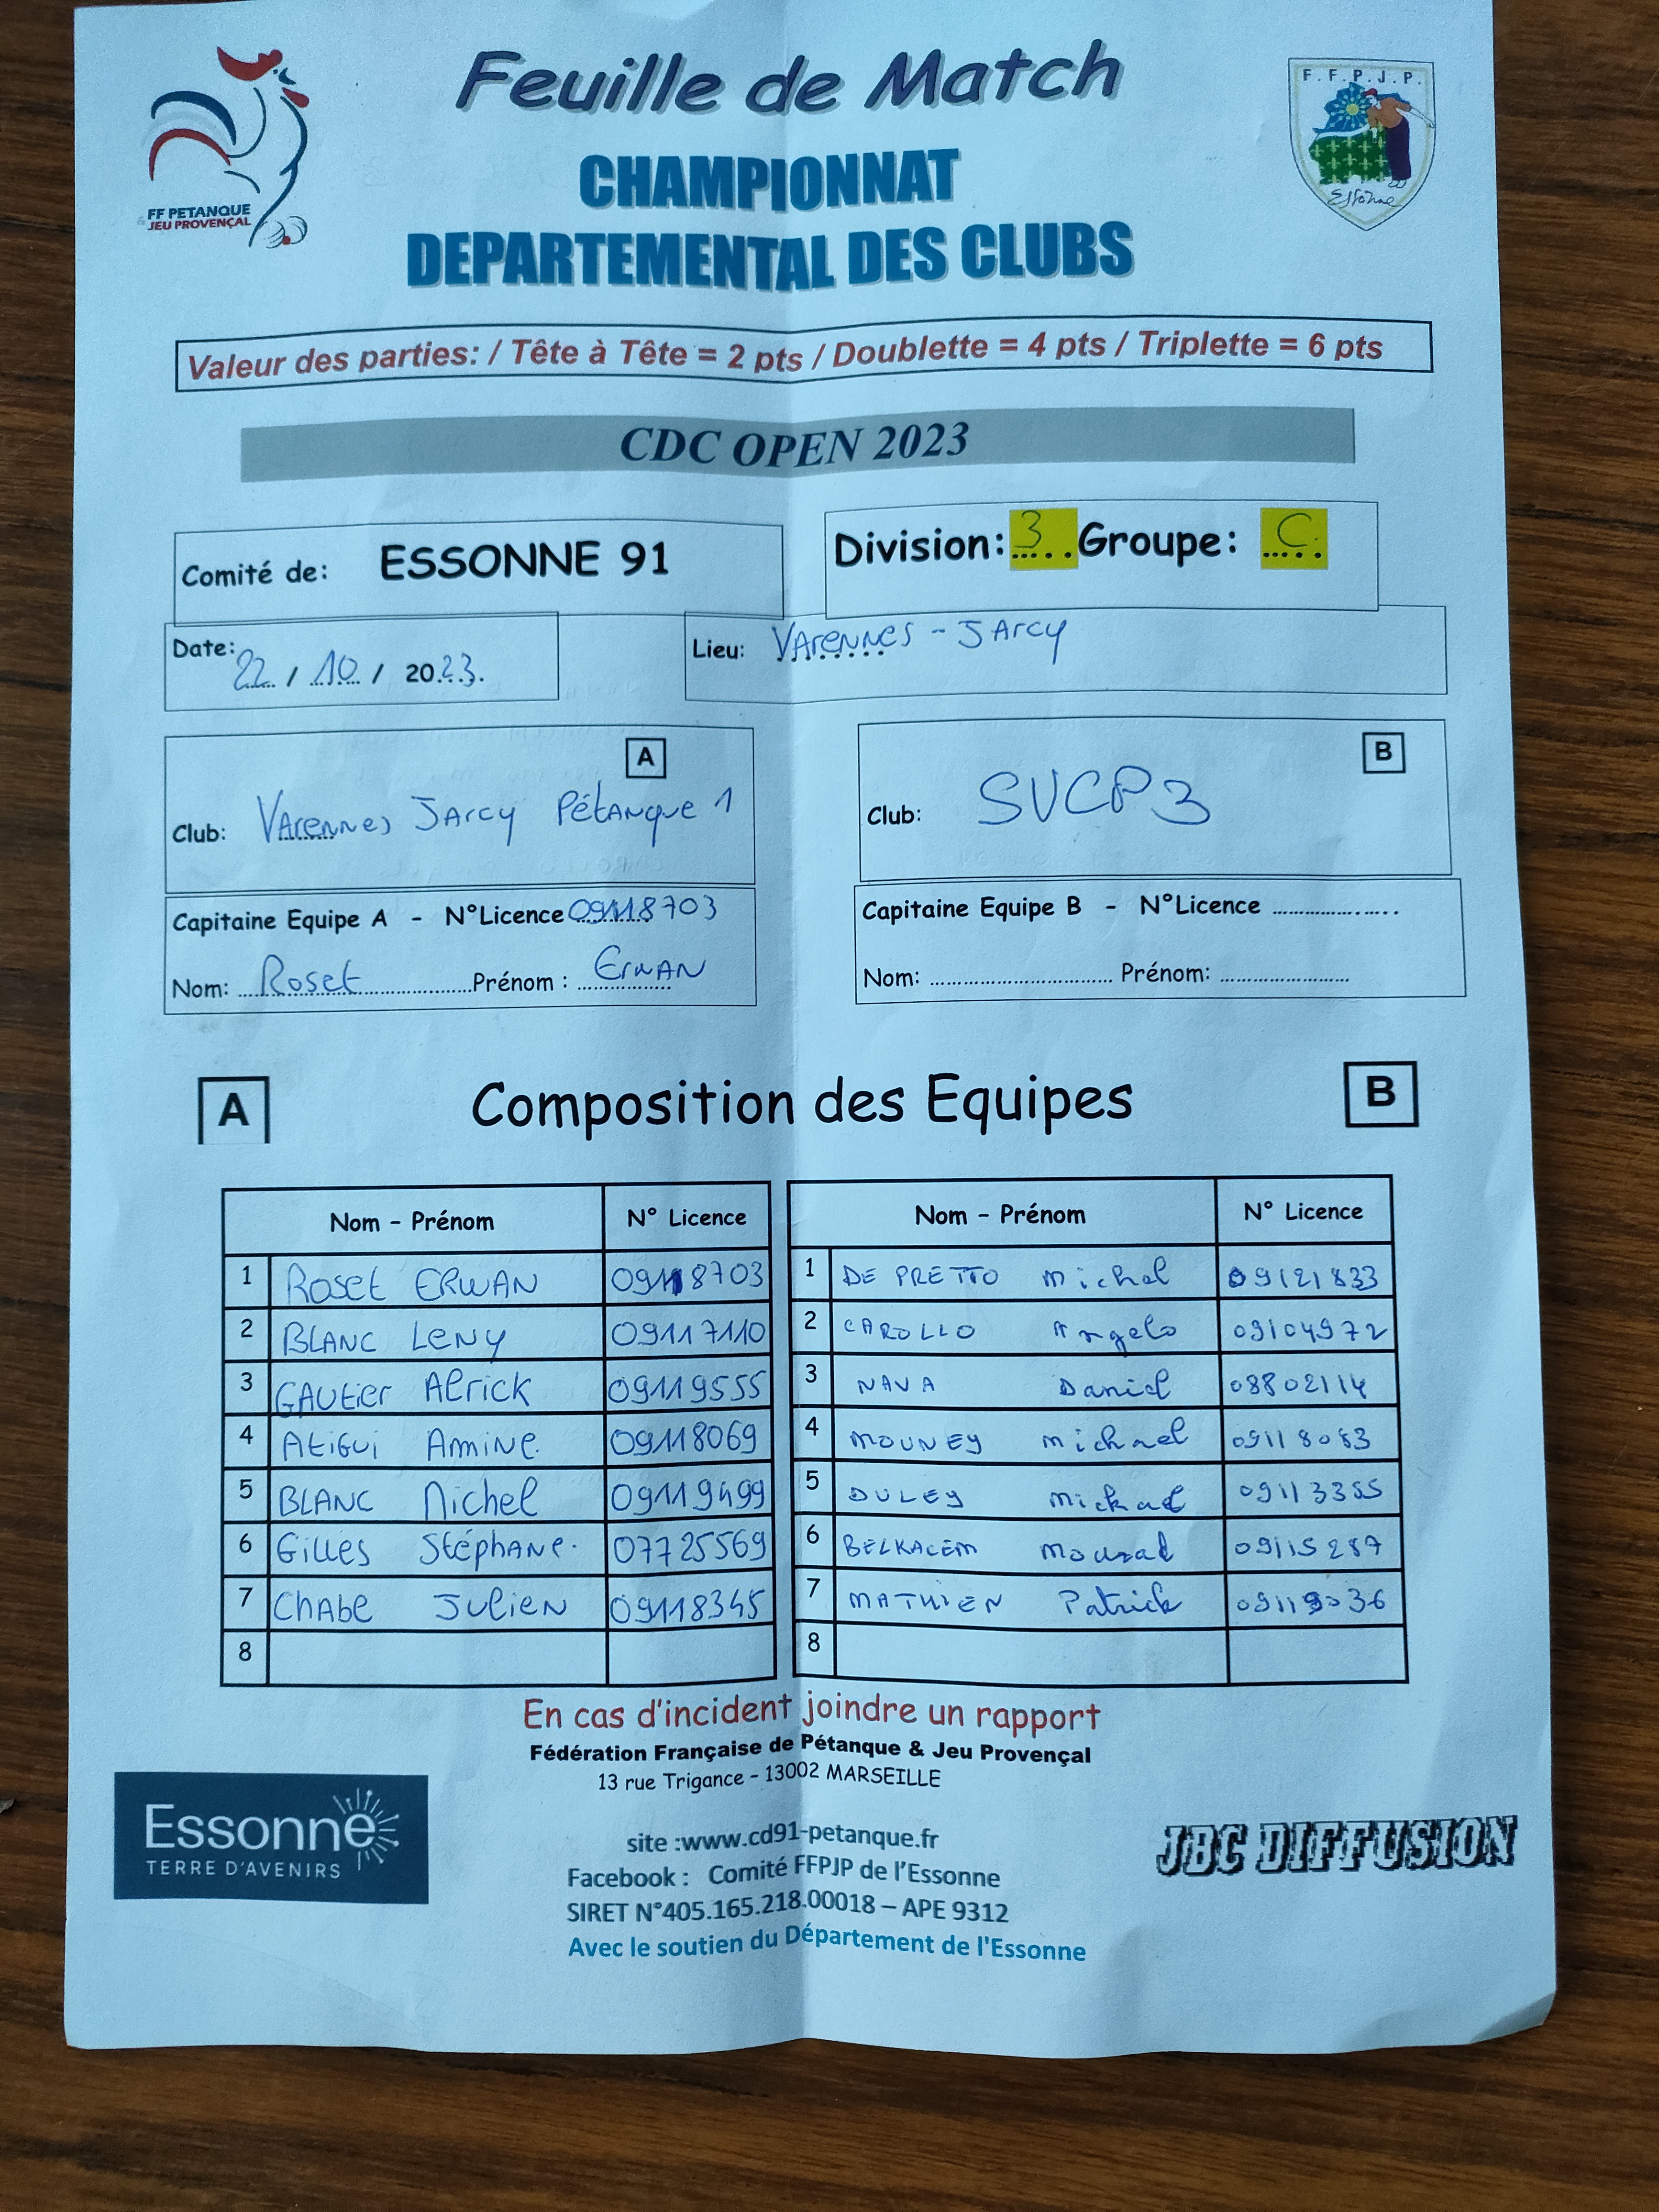 Feuille de Match
F.F.P.J.P.
Essonne
FF PETANQUE
JEU PROVENÇAL
CHAMPIONNAT
DEPARTEMENTAL DES CLUBS
Valeur des parties: / Tête à Tête = 2 pts / Doublette = 4 pts / Triplette = 6 pts
CDC OPEN 2023
Comité de: ESSONNE 91
Division: 3 Groupe: C
Date: 22 / 10 / 2023.
Lieu: Varennes - Jarcy
A
Club: Varennes Jarcy Pétanque 1
B
Club: SVCP3
Capitaine Equipe A - N°Licence 09118703
Nom: Roset Prénom : Erwan
Capitaine Equipe B - N°Licence ....................
Nom: .............................. Prénom: ......................
A Composition des Equipes B
Nom - Prénom N° Licence Nom - Prénom N° Licence
1 Roset ERWAN 09118703 1 DE PRETTO Michel 09121833
2 BLANC LENY 09117110 2 CAROLLO Angelo 09104972
3 GAUtier Alrick 09119555 3 NAVA Daniel 08802114
4 Atigui Amine. 09118069 4 MOUNEY Michael 09118083
5 BLANC Michel 09119499 5 DULEY Mickael 09113355
6 Gilles Stéphane. 07725569 6 BELKACEM Mourad 09115287
7 Chabe Julien 09118345 7 MATHIEN Patrick 09119036
8 8
En cas d'incident joindre un rapport
Fédération Française de Pétanque & Jeu Provençal
13 rue Trigance - 13002 MARSEILLE
Essonne
TERRE D'AVENIRS
site :www.cd91-petanque.fr
Facebook : Comité FFPJP de l'Essonne
SIRET N°405.165.218.00018 – APE 9312
Avec le soutien du Département de l'Essonne
JBC DIFFUSION